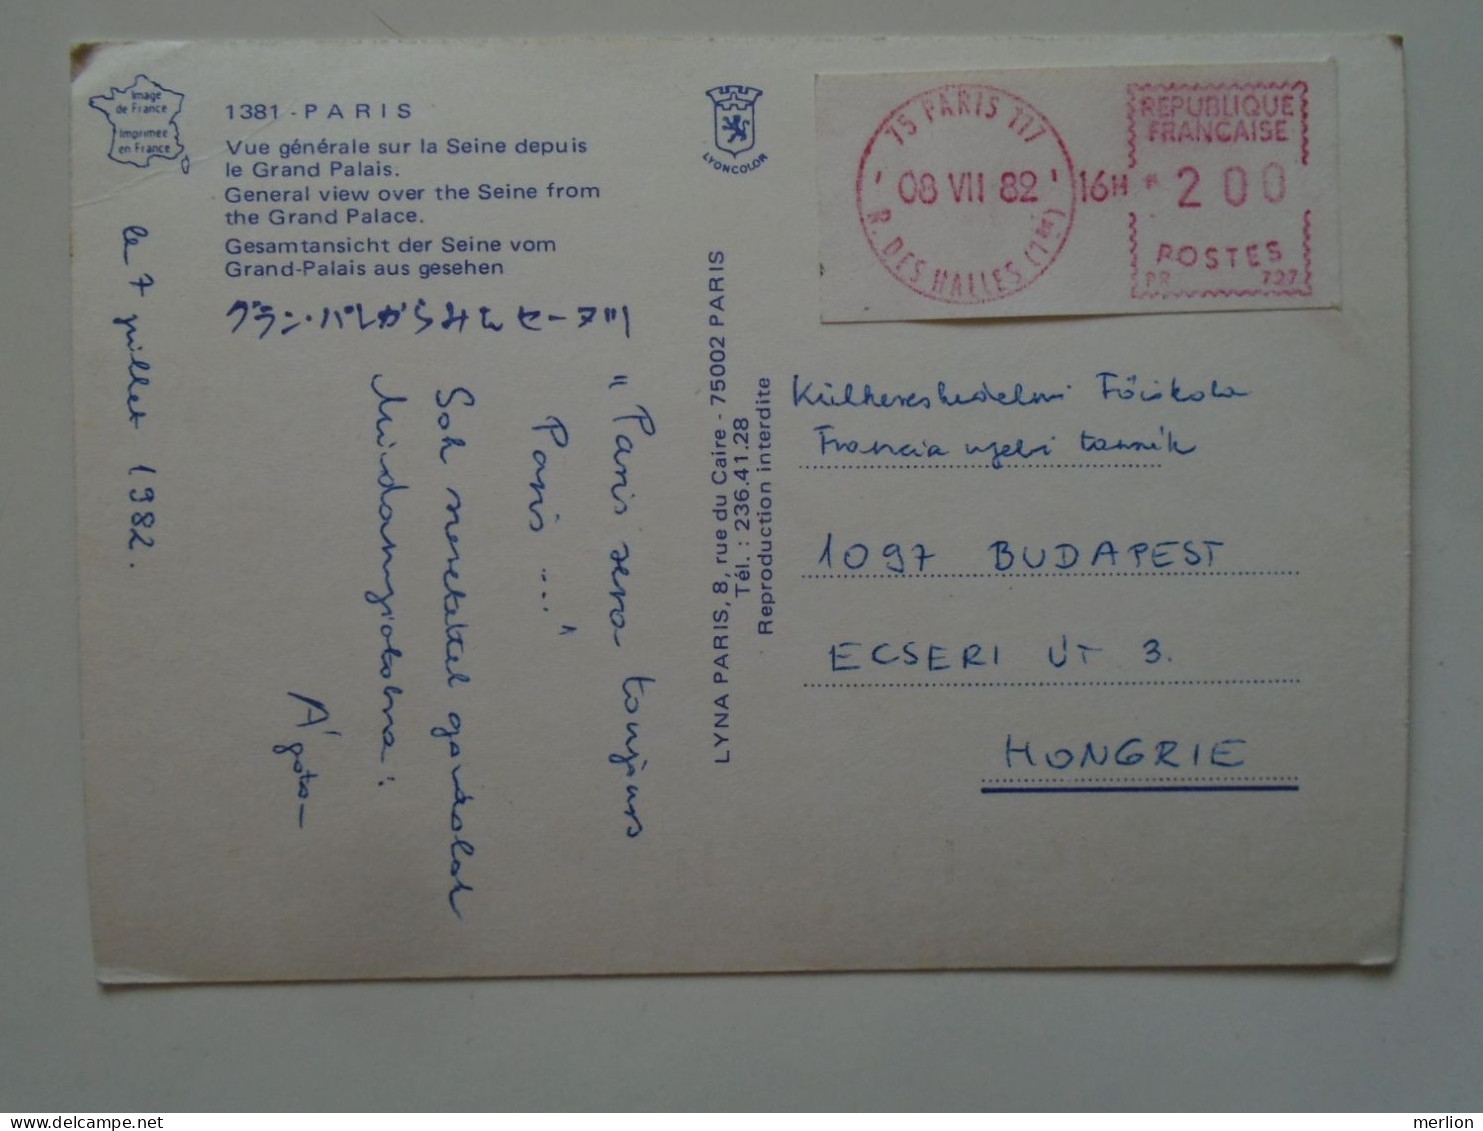 Image
de France
Imprimée
en France
1381 - PARIS
Vue générale sur la Seine depuis
le Grand Palais.
General view over the Seine from
the Grand Palace.
Gesamtansicht der Seine vom
Grand-Palais aus gesehen
グラン・パレからみたセーヌ川
le 7 juillet 1982.
"Paris sera toujours
Paris ..."
Sok szeretettel gondolok
Mindannyiotokra:
Ágota
LYONCOLOR
LYNA PARIS, 8, rue du Caire - 75002 PARIS
Tél. : 236.41.28
Reproduction interdite
75 PARIS 777
08 VII 82
R. DES HALLES (1er)
16H
REPUBLIQUE
FRANCAISE
* 200
POSTES
PR 727
Külkereskedelmi Főiskola
Francia nyelvi tanszék
1097 BUDAPEST
ECSERI ÚT 3.
HONGRIE
merlion